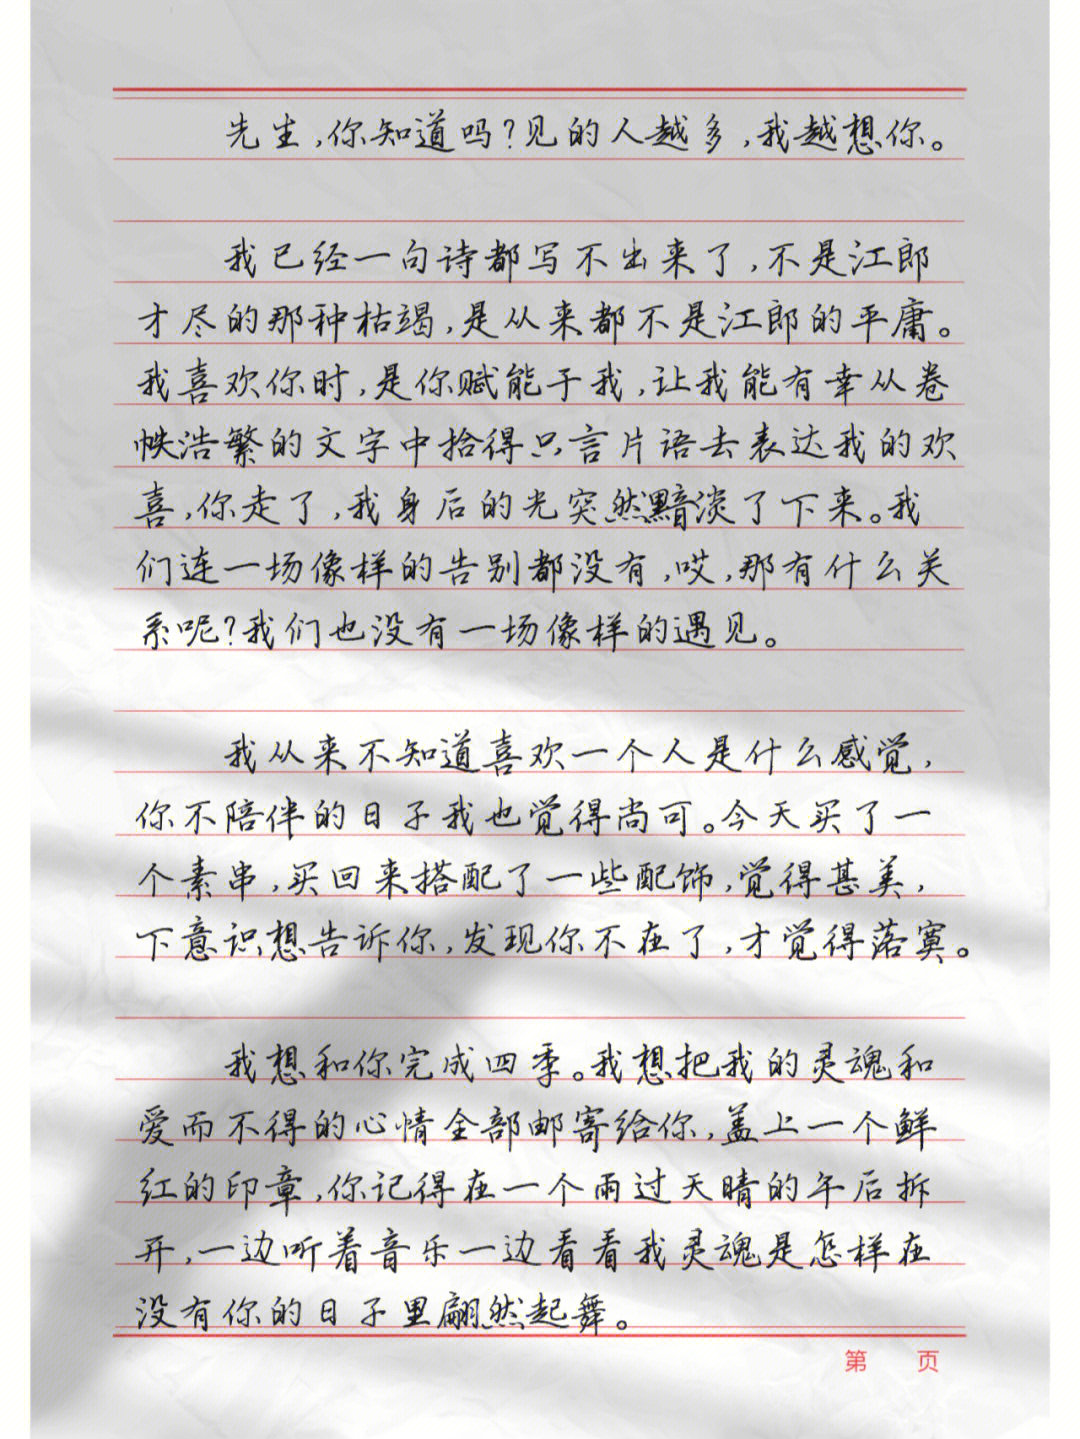 先生,你知道吗?见的人越多,我越想你。
我已经一句诗都写不出来了,不是江郎
才尽的那种枯竭,是从来都不是江郎的平庸。
我喜欢你时,是你赋能于我,让我能有幸从卷
帙浩繁的文字中拾得只言片语去表达我的欢
喜,你走了,我身后的光突然黯淡了下来。我
们连一场像样的告别都没有,哎,那有什么关
系呢?我们也没有一场像样的遇见。
我从来不知道喜欢一个人是什么感觉,
你不陪伴的日子我也觉得尚可。今天买了一
个素串,买回来搭配了一些配饰,觉得甚美,
下意识想告诉你,发现你不在了,才觉得落寞。
我想和你完成四季。我想把我的灵魂和
爱而不得的心情全部邮寄给你,盖上一个鲜
红的印章,你记得在一个雨过天晴的午后拆
开,一边听着音乐一边看看我灵魂是怎样在
没有你的日子里翩然起舞。
第 页